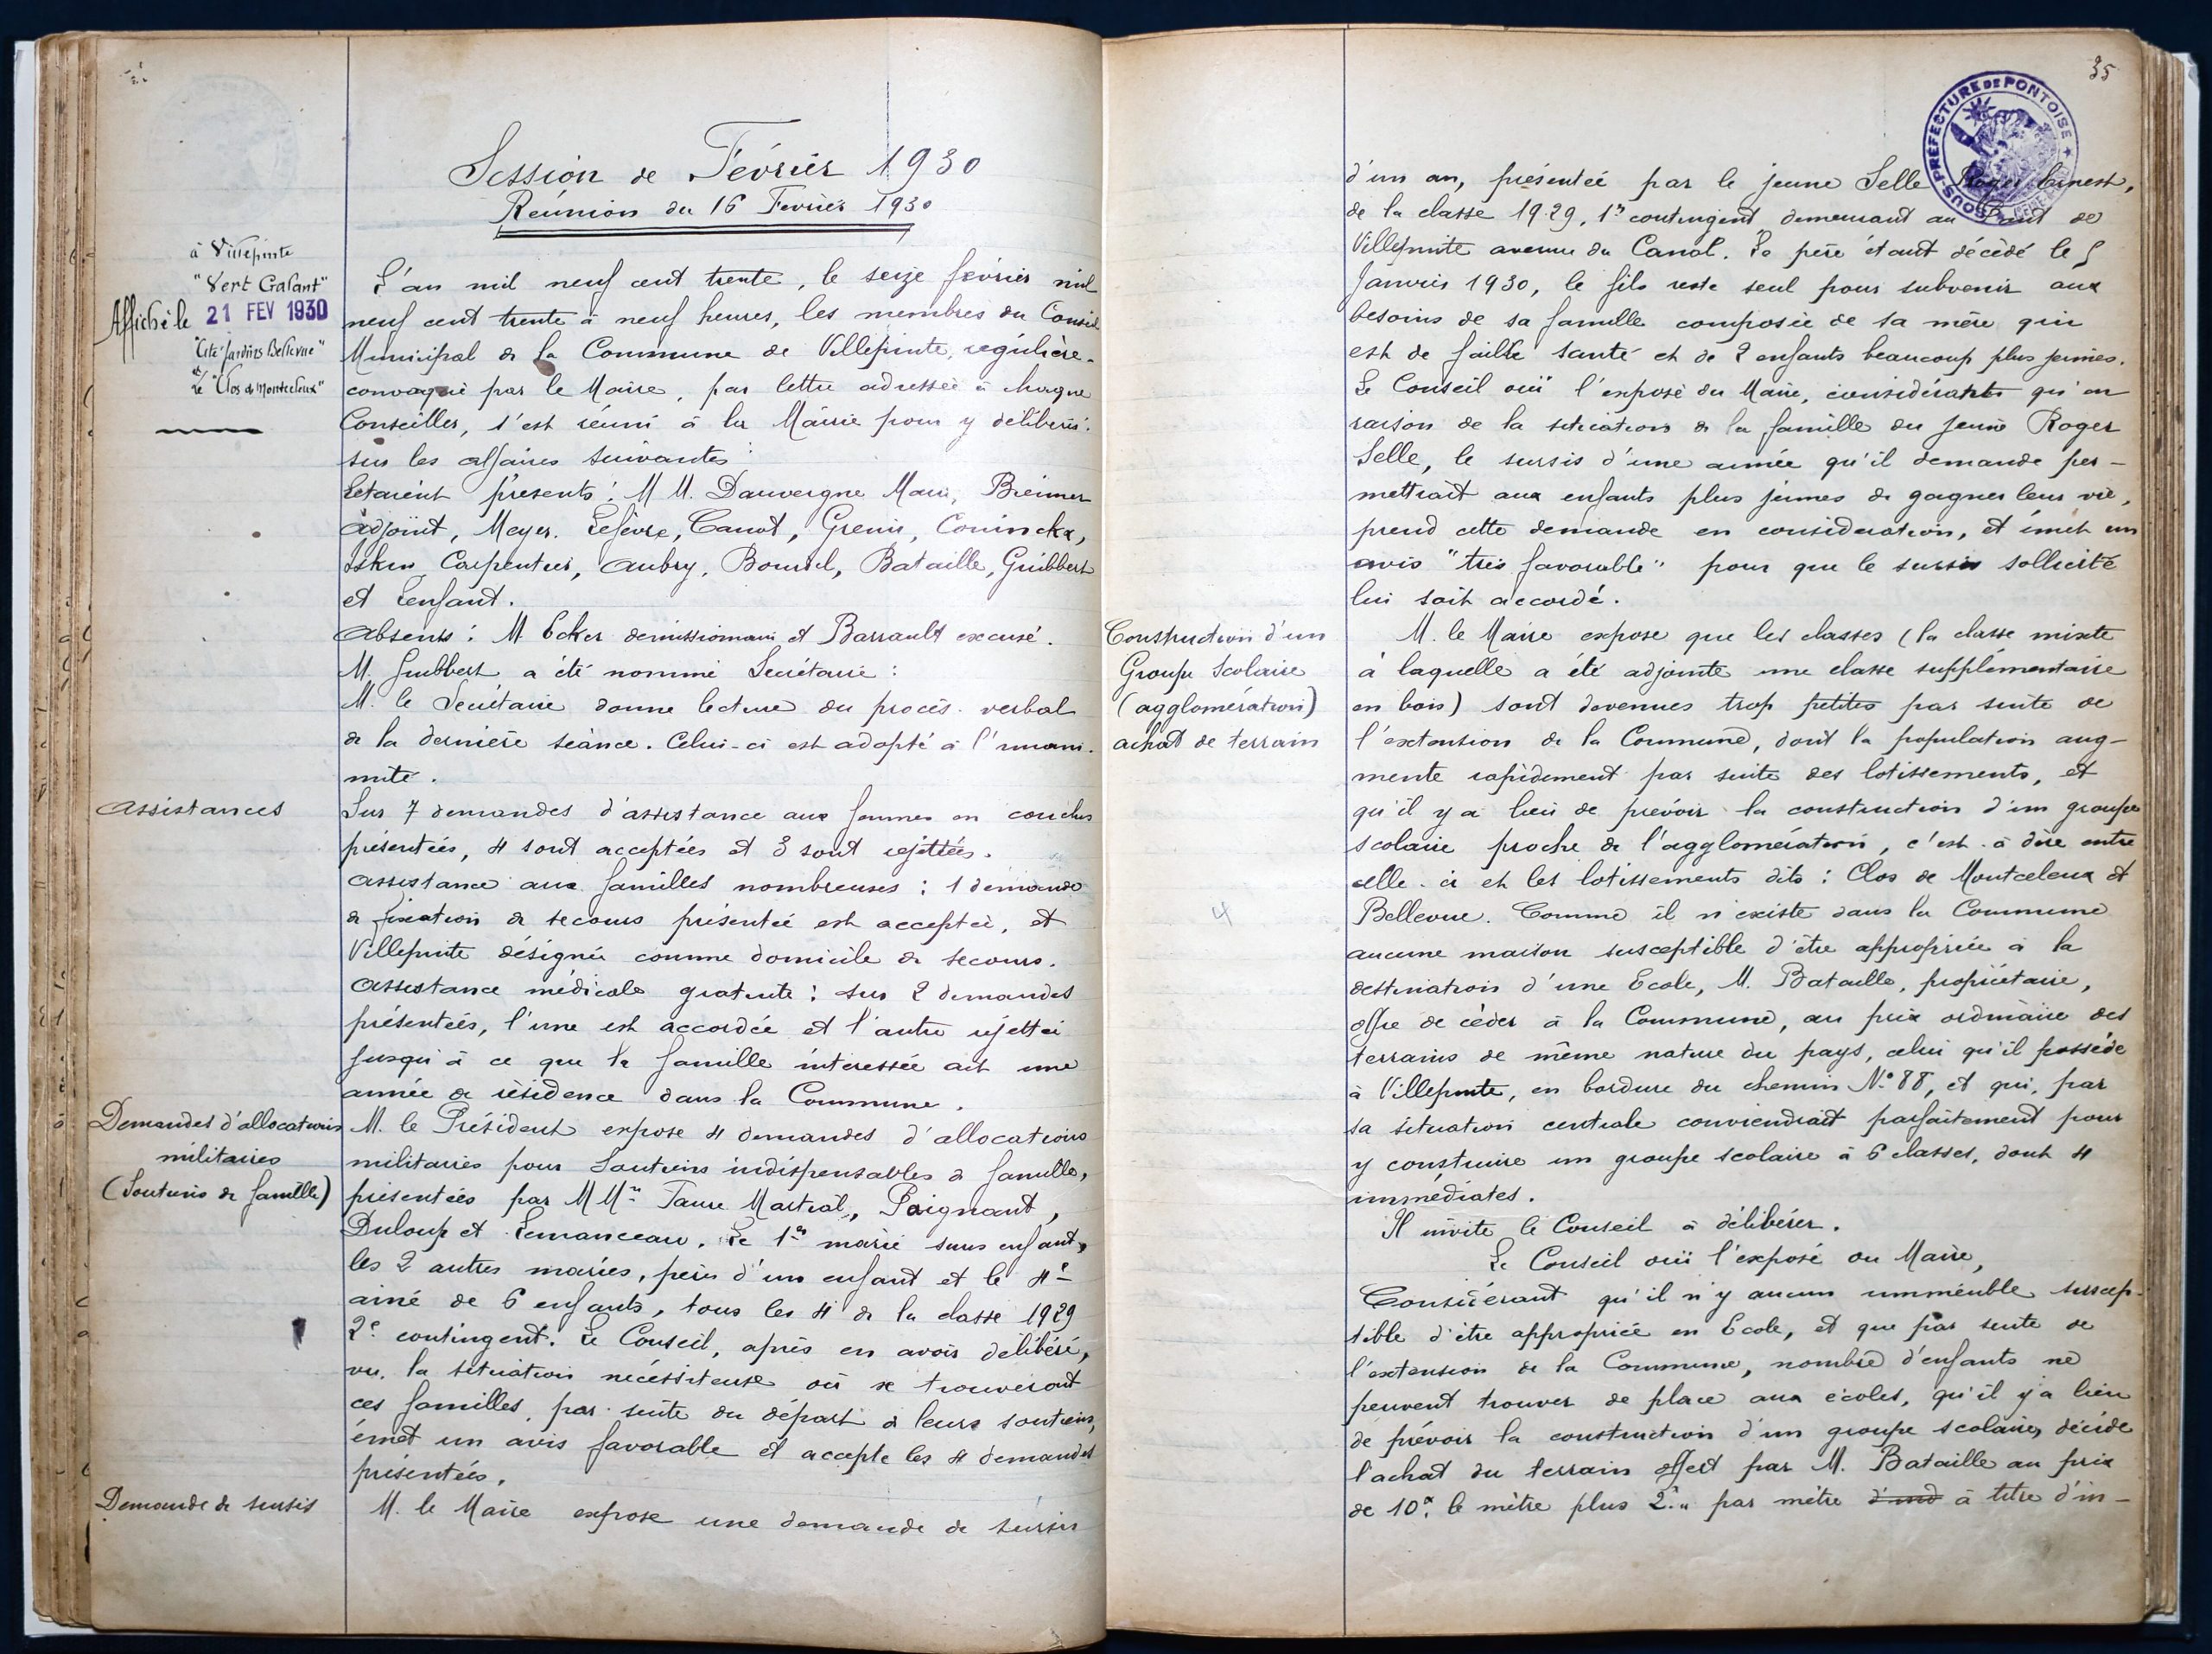 Session de Février 1930
Réunion du 16 Février 1930
à Villepinte
"Vert Galant"
Affiché le 21 FEV 1930
"Cité Jardins Bellevue"
et
Le "Clos de Montceleux"
L'an mil neuf cent trente, le seize février mil
neuf cent trente à neuf heures, les membres du Conseil
Municipal de la Commune de Villepinte, régulière-
convoqué par le Maire, par lettre adressée à chaque
Conseiller, s'est réuni à la Mairie pour y délibérer
sur les affaires suivantes :
Etaient présents : M M. Dauvergne Maire, Breimer
adjoint, Meyer, Lefèvre, Canot, Grenu, Coninckx,
Carpentier, Aubry, Boursel, Bataille, Guibbert
et Lenfant.
Absents : M Ecker démissionnaire et Barrault excusé.
M. Guibbert a été nommé Secrétaire :
M. le Secrétaire donne lecture du procès-verbal
de la dernière séance. Celui-ci est adopté à l'unani-
mité.
Assistances
Sur 7 demandes d'assistance aux femmes en couches
présentées, 4 sont acceptées et 3 sont rejettées.
Assistance aux familles nombreuses : 1 demande
de fixation de secours présentée est acceptée, et
Villepinte désignée comme domicile de secours.
Assistance médicale gratuite : sur 2 demandes
présentées, l'une est accordée et l'autre rejettée
jusqu'à ce que la famille intéressée ait une
année de résidence dans la Commune.
Demandes d'allocations
militaires
(Soutiens de famille)
M. le Président expose 4 demandes d'allocations
militaires pour soutiens indispensables de famille,
présentées par M Mrs Faure Martial, Poignant,
Duloup et Lemanceau. Le 1er marié sans enfants,
les 2 autres mariés, pères d'un enfant et le 4e
ainé de 6 enfants, tous les 4 de la classe 1929
2e contingent. Le Conseil, après en avoir délibéré,
vu, la situation nécéssiteuse où se trouveront
ces familles, par suite du départ de leurs soutiens,
émet un avis favorable et accepte les 4 demandes
présentées.
Demande de sursis
M. le Maire expose une demande de sursis
35
SOUS-PRÉFECTURE DE PONTOISE
d'un an, présentée par le jeune Selle Roger Ernest,
de la classe 1929, 1er contingent demeurant au Vert de
Villepinte avenue du Canal. Le père étant décédé le 5
Janvier 1930, le fils reste seul pour subvenir aux
besoins de sa famille composée de sa mère qui
est de faible santé et de 2 enfants beaucoup plus jeunes.
Le Conseil ouï l'exposé du Maire, considérant qu'en
raison de la situation de la famille du jeune Roger
Selle, le sursis d'une année qu'il demande per-
mettrait aux enfants plus jeunes de gagner leur vie,
prend cette demande en considération, et émet un
avis "très favorable" pour que le sursis sollicité
lui soit accordé.
Construction d'un
Groupe Scolaire
(agglomération)
achat de terrain
M. le Maire expose que les classes (la classe mixte
à laquelle a été adjointe une classe supplémentaire
en bois) sont devenues trop petites par suite de
l'extension de la Commune, dont la population aug-
mente rapidement par suite des lotissements, et
qu'il y a lieu de prévoir la construction d'un groupe
scolaire proche de l'agglomération, c'est-à dire entre
celle-ci et les lotissements dits : Clos de Montceleux et
Bellevue. Comme il n'existe dans la Commune
4
aucune maison susceptible d'être appropriée à la
destination d'une Ecole, M. Bataille, propriétaire,
offre de céder à la Commune, au prix ordinaire des
terrains de même nature du pays, celui qu'il possède
à Villepinte, en bordure du chemin N° 88, et qui, par
sa situation centrale conviendrait parfaitement pour
y construire un groupe scolaire à 6 classes, dont 4
immédiates.
Il invite le Conseil à délibérer.
Le Conseil ouï l'exposé du Maire,
Considérant qu'il n'y aucun immeuble suscep-
tible d'être approprié en Ecole, et que par suite de
l'extension de la Commune, nombre d'enfants ne
peuvent trouver de place aux écoles, qu'il y a lieu
de prévoir la construction d'un groupe scolaire, décide
l'achat du terrain offert par M. Bataille au prix
de 10f. le mètre plus 2f." par mètre d'ind à titre d'in-